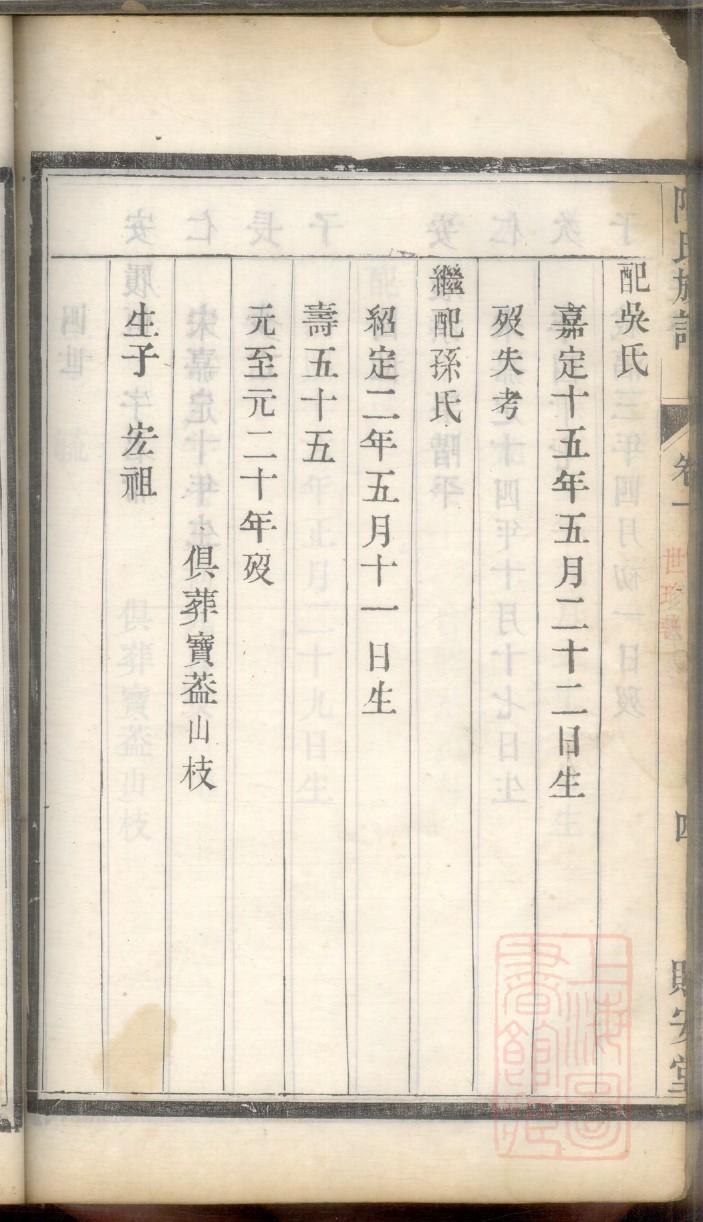 配吳氏
嘉定十五年五月二十二日生
歿失考
繼配孫氏
紹定二年五月十一日生
壽五十五
元至元二十年歿
俱葬寶葢山枝
生子宏祖
氏族譜
卷一
世珍
四
安堂
上海圖書館藏